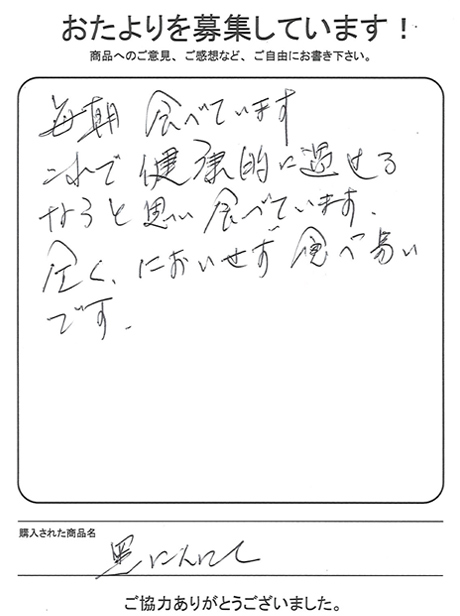 おたよりを募集しています！
商品へのご意見、ご感想など、ご自由にお書き下さい。
毎朝 食べています
これで健康的に過せる
ならと思い食べています．
全く、においせず食べ易い
です．
購入された商品名
黒にんにく
ご協力ありがとうございました。